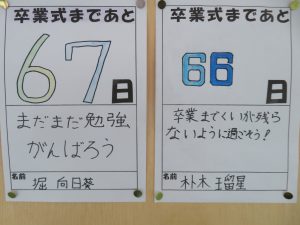 卒業式まであと
67日
まだまだ勉強
がんばろう
名前
堀 向日葵
卒業式まであと
66日
卒業までくいが残ら
ないように過ごそう!
名前
朴木 瑠星